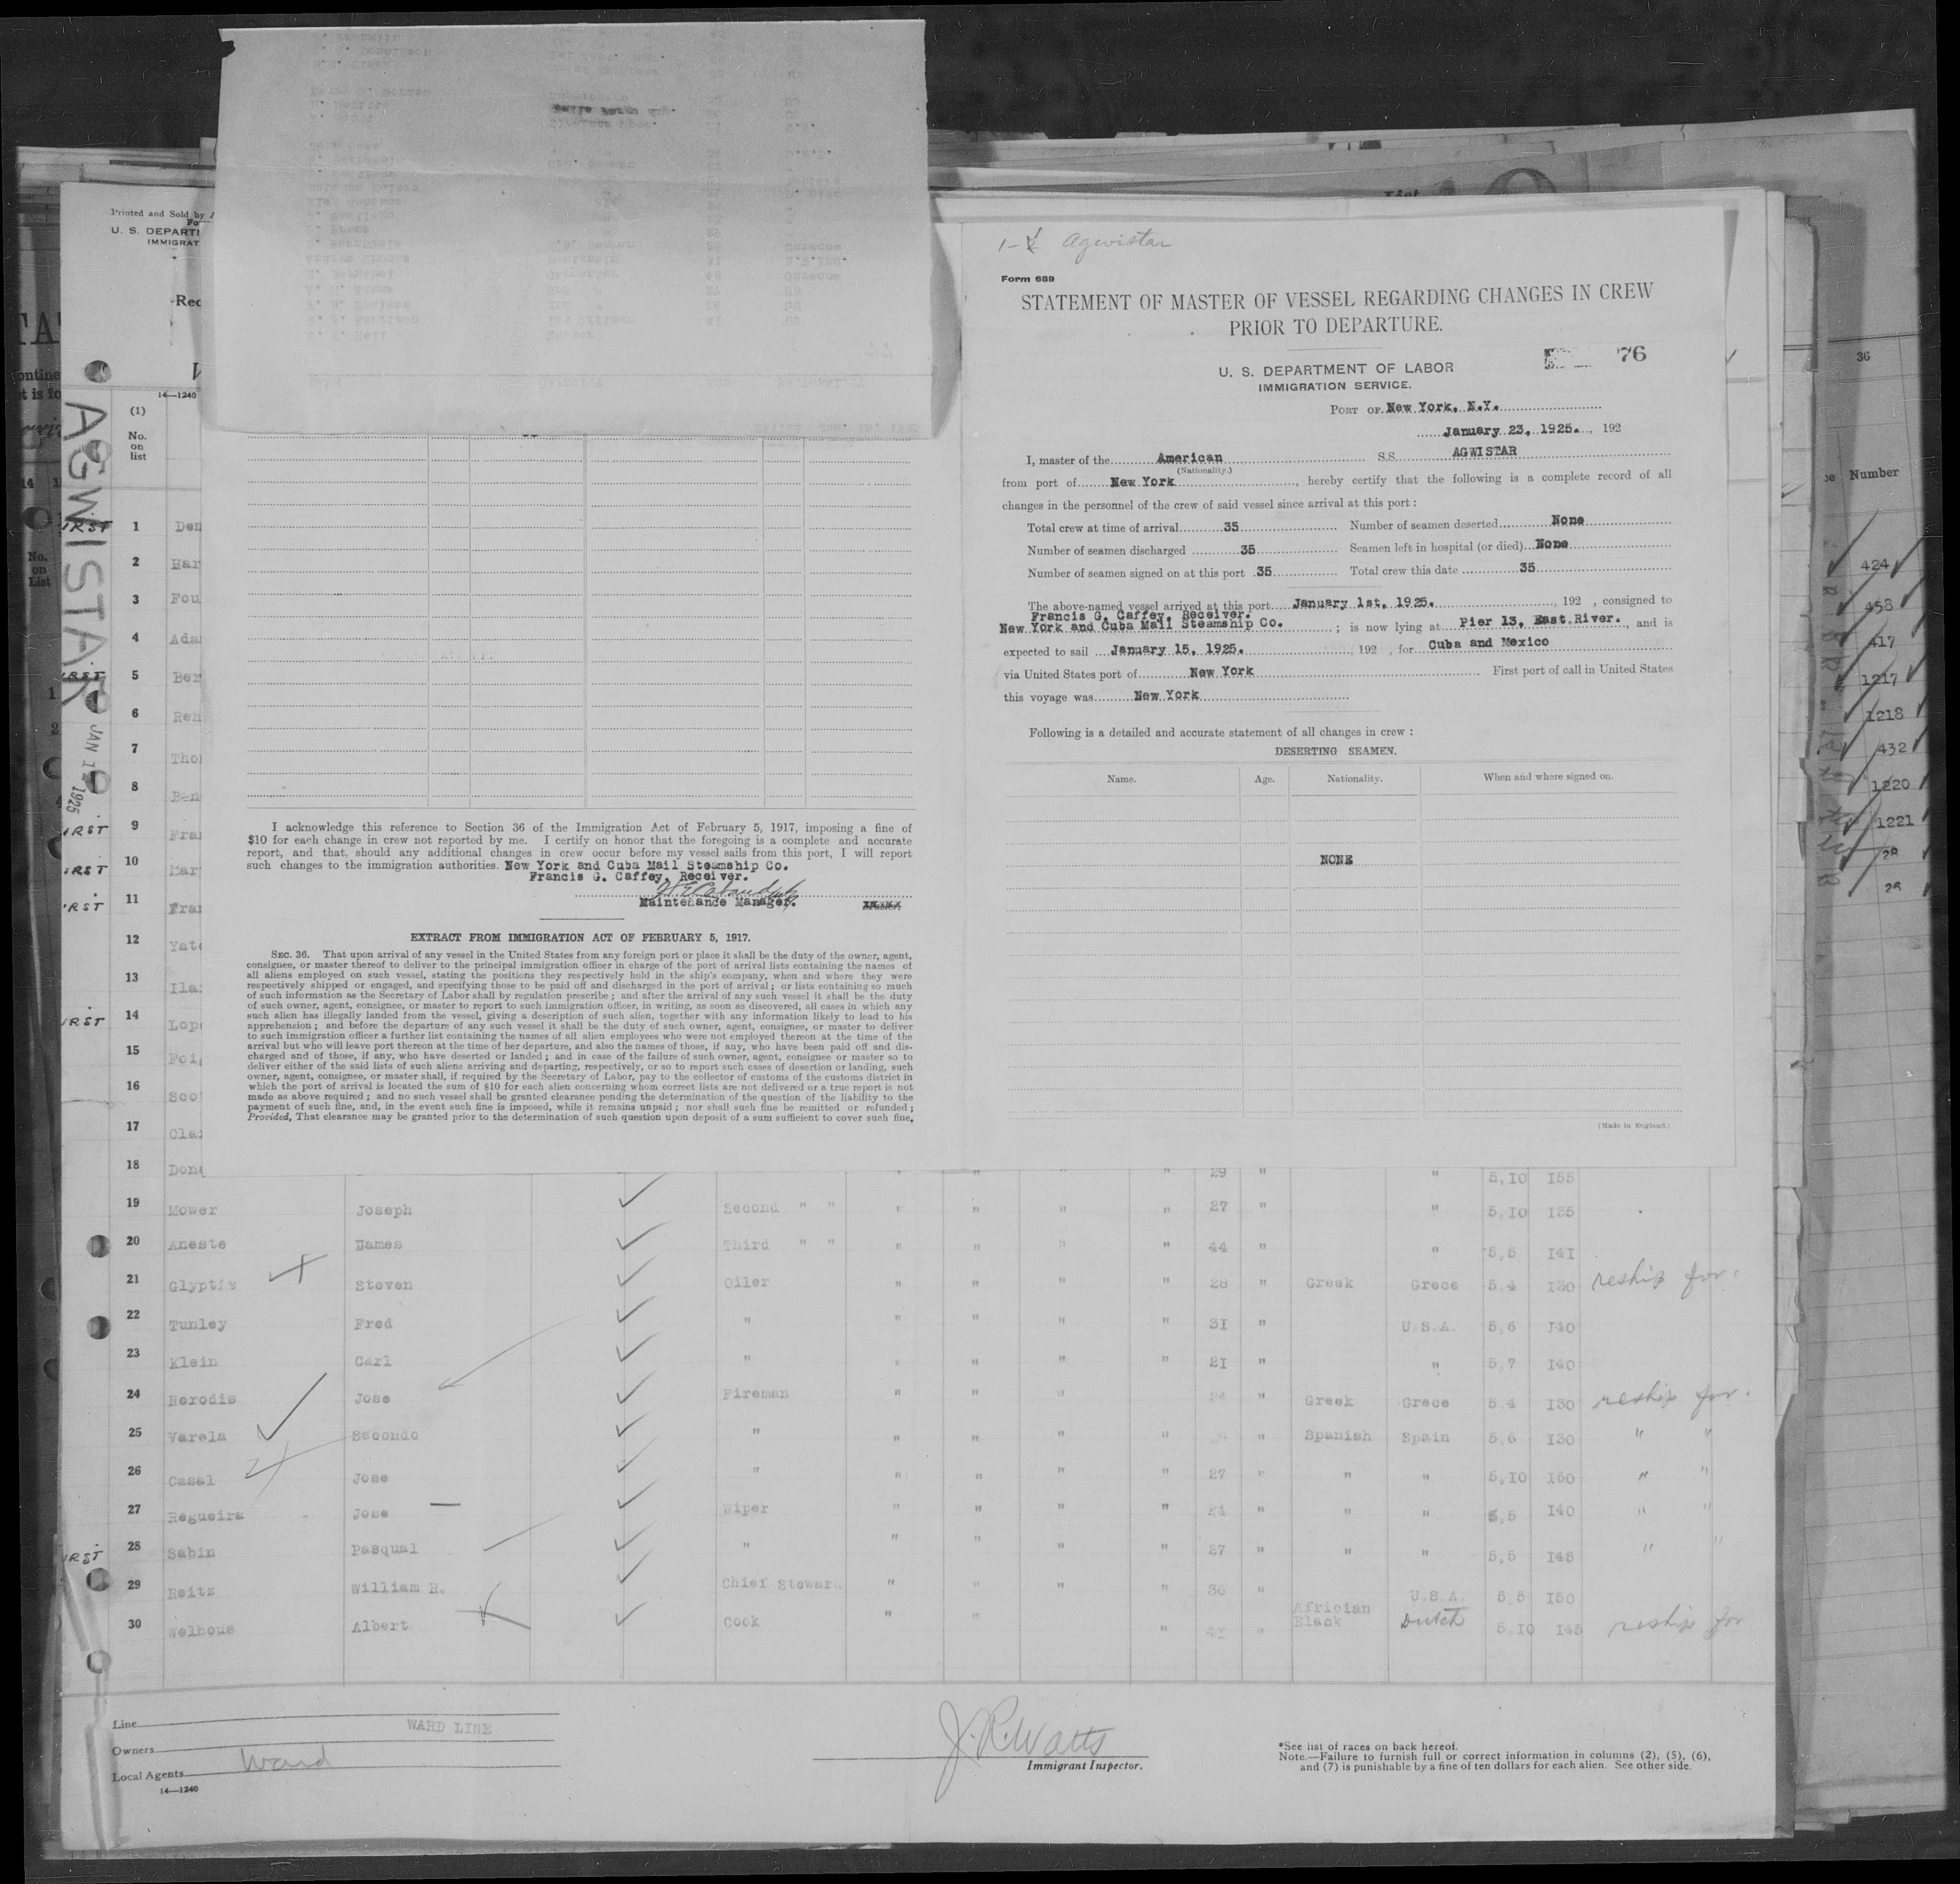 1- Agwistar
Form 689
STATEMENT OF MASTER OF VESSEL REGARDING CHANGES IN CREW
PRIOR TO DEPARTURE.
76
U. S. DEPARTMENT OF LABOR
IMMIGRATION SERVICE.
PORT OF New York, N.Y.
January 23, 1925., 192
I, master of the American S.S. AGWISTAR
(Nationality.)
from port of New York, hereby certify that the following is a complete record of all
changes in the personnel of the crew of said vessel since arrival at this port :
Total crew at time of arrival 35 Number of seamen deserted None
Number of seamen discharged 35 Seamen left in hospital (or died) None
Number of seamen signed on at this port 35 Total crew this date 35
The above-named vessel arrived at this port January 1st, 1925. , 192 , consigned to
Francis G. Caffey, Receiver.
New York and Cuba Mail Steamship Co. ; is now lying at Pier 13, East River. , and is
expected to sail January 15, 1925. , 192 , for Cuba and Mexico
via United States port of New York First port of call in United States
this voyage was New York
Following is a detailed and accurate statement of all changes in crew :
DESERTING SEAMEN.
Name. Age. Nationality. When and where signed on.
NONE
(Made in England.)
I acknowledge this reference to Section 36 of the Immigration Act of February 5, 1917, imposing a fine of
$10 for each change in crew not reported by me. I certify on honor that the foregoing is a complete and accurate
report, and that, should any additional changes in crew occur before my vessel sails from this port, I will report
such changes to the immigration authorities. New York and Cuba Mail Steamship Co.
Francis G. Caffey, Receiver.
Maintenance Manager.
EXTRACT FROM IMMIGRATION ACT OF FEBRUARY 5, 1917.
SEC. 36. That upon arrival of any vessel in the United States from any foreign port or place it shall be the duty of the owner, agent,
consignee, or master thereof to deliver to the principal immigration officer in charge of the port of arrival lists containing the names of
all aliens employed on such vessel, stating the positions they respectively hold in the ship's company, when and where they were
respectively shipped or engaged, and specifying those to be paid off and discharged in the port of arrival ; or lists containing so much
of such information as the Secretary of Labor shall by regulation prescribe ; and after the arrival of any such vessel it shall be the duty
of such owner, agent, consignee, or master to report to such immigration officer, in writing, as soon as discovered, all cases in which any
such alien has illegally landed from the vessel, giving a description of such alien, together with any information likely to lead to his
apprehension ; and before the departure of any such vessel it shall be the duty of such owner, agent, consignee, or master to deliver
to such immigration officer a further list containing the names of all alien employees who were not employed thereon at the time of the
arrival but who will leave port thereon at the time of her departure, and also the names of those, if any, who have been paid off and dis-
charged and of those, if any, who have deserted or landed ; and in case of the failure of such owner, agent, consignee or master so to
deliver either of the said lists of such aliens arriving and departing, respectively, or so to report such cases of desertion or landing, such
owner, agent, consignee, or master shall, if required by the Secretary of Labor, pay to the collector of customs of the customs district in
which the port of arrival is located the sum of $10 for each alien concerning whom correct lists are not delivered or a true report is not
made as above required ; and no such vessel shall be granted clearance pending the determination of the question of the liability to the
payment of such fine, and, in the event such fine is imposed, while it remains unpaid ; nor shall such fine be remitted or refunded ;
Provided, That clearance may be granted prior to the determination of such question upon deposit of a sum sufficient to cover such fine,
Printed and Sold by
U. S. DEPARTM
IMMIGRAT
Rec
14—1240
AGWISTAR
JAN 1 1925
(1)
No.
on
list
IRST 1 Den
2 Har
3 Fou
4 Ada
IRST 5 Ber
6 Reh
7 Tho
8 Ben
IRST 9 Fra
IRST 10 Har
IRST 11 Fra
12 Yat
13 Ila
IRST 14 Lop
15 Foi
16 Sco
17 Cla
18 Don " " " " 29 " " 5,10 155
19 Mower Joseph Second " " " " " " 27 " " 5,10 135
20 Aneste Hames Third " " " " " " 44 " " 5,5 141
21 Glyptis Steven Oiler " " " " 28 " Greek Grece 5.4 130 reship for.
22 Tunley Fred " " " " " 31 " U.S.A. 5,6 140
23 Klein Carl " " " " " 21 " " 5,7 140
24 Herodis Jose Fireman " " " " " Greek Grece 5.4 130 reship for.
25 Varela Secondo " " " " " " Spanish Spain 5,6 130 " "
26 Casal Jose " " " " " 27 " " " 5,10 160 " "
27 Regueira Jose Wiper " " " " 24 " " " 5,5 140 " "
IRST 28 Sabin Pasqual " " " " " 27 " " " 5,5 145 " "
29 Reitz William R. Chief Steward " " " " 36 " U.S.A. 5,5 150
30 Welhous Albert Cook " " " " Africian Black Dutch 5,10 145 reship for
Line WARD LINE
Owners
Local Agents Ward
14—1240
J. R. Watts
Immigrant Inspector.
*See list of races on back hereof.
Note.—Failure to furnish full or correct information in columns (2), (5), (6),
and (7) is punishable by a fine of ten dollars for each alien. See other side.
36
Number
424
458
417
1217
1218
432
1220
1221
28
28
No.
on
List